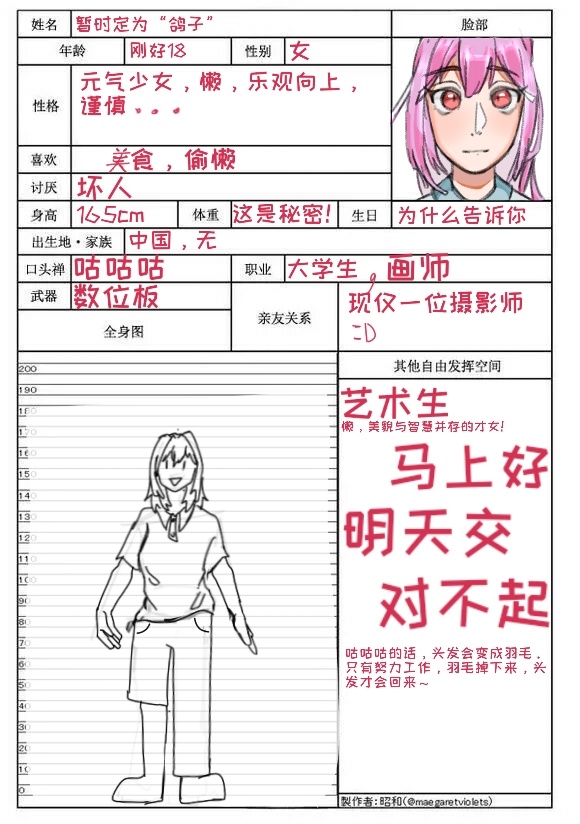 姓名 暂时定为“鸽子” 脸部
年龄 刚好18 性别 女
性格 元气少女，懒，乐观向上，
谨慎...
喜欢 美食，偷懒
讨厌 坏人
身高 165cm 体重 这是秘密! 生日 为什么告诉你
出生地·家族 中国，无
口头禅 咕咕咕 职业 大学生，画师
武器 数位板 亲友关系 现仅一位摄影师
:D
全身图
其他自由发挥空间
200
190
180
170
160
150
140
130
120
110
100
90
80
70
60
50
40
30
20
10
0
艺术生
懒，美貌与智慧并存的才女!
马上好
明天交
对不起
咕咕咕的话，头发会变成羽毛。
只有努力工作，羽毛掉下来，头
发才会回来~
製作者:昭和(@maegaretviolets)